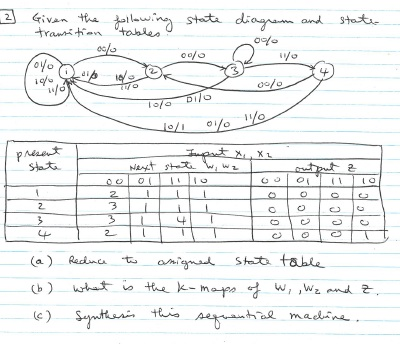 2 Given the following state diagram and state-
transition tables
00/0
00/0
00/0
11/0
01/0
10/0
11/0
1
01/0
10/0
11/0
2
3
4
00/0
10/0 01/0
10/1 01/0 11/0
present state
Input X1, X2
Next state W1 W2
output Z
00 01 11 10 00 01 11 10
1 2 1 1 1 0 0 0 0
2 3 1 1 1 0 0 0 0
3 3 1 4 1 0 0 0 0
4 2 1 1 1 0 0 0 1
(a) Reduce to assigned state table
(b) what is the K-maps of W1, W2 and Z.
(c) Synthesis this sequential machine.